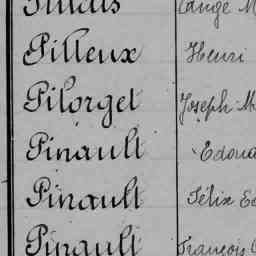 Pilleux Henri
Pilorget Joseph M
Pinault Edoua
Pinault Félix Ed
Pinault François